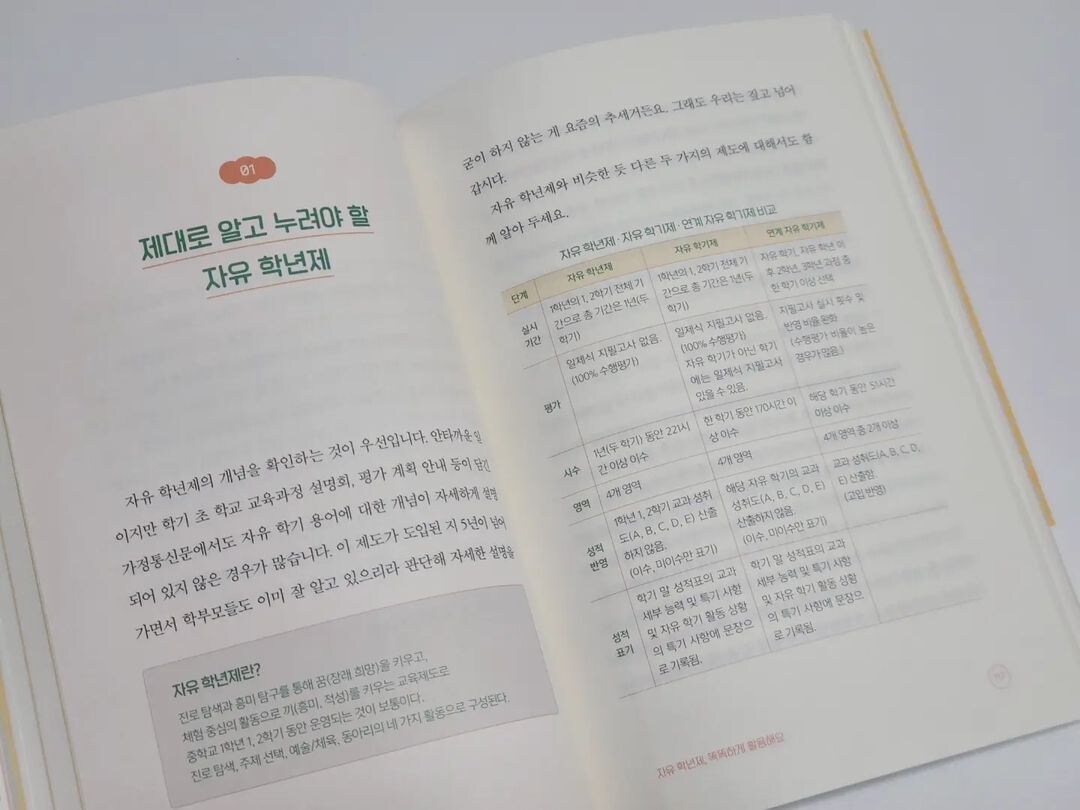 01
제대로 알고 누려야 할
자유 학년제
자유 학년제의 개념을 확인하는 것이 우선입니다. 안타까운 일
이지만 학기 초 학교 교육과정 설명회, 평가 계획 안내 등이 담긴
가정통신문에서도 자유 학기 용어에 대한 개념이 자세하게 설명
되어 있지 않은 경우가 많습니다. 이 제도가 도입된 지 5년이 넘어
가면서 학부모들도 이미 잘 알고 있으리라 판단해 자세한 설명을
자유 학년제란?
진로 탐색과 흥미 탐구를 통해 꿈(장래 희망)을 키우고,
체험 중심의 활동으로 끼(흥미, 적성)를 키우는 교육제도로
중학교 1학년 1, 2학기 동안 운영되는 것이 보통이다.
진로 탐색, 주제 선택, 예술/체육, 동아리의 네 가지 활동으로 구성된다.
굳이 하지 않는 게 요즘의 추세거든요. 그래도 우리는 짚고 넘어
갑시다.
자유 학년제와 비슷한 듯 다른 두 가지의 제도에 대해서도 함
께 알아 두세요.
자유 학년제·자유 학기제·연계 자유 학기제 비교
단계
자유 학년제
자유 학기제
연계 자유 학기제
실시
기간
1학년의 1, 2학기 전체 기
간으로 총 기간은 1년(두
학기)
1학년의 1, 2학기 전체 기
간으로 총 기간은 1년(두
학기)
자유 학기, 자유 학년 이
후 2학년, 3학년 과정 중
한 학기 이상 선택
평가
일제식 지필고사 없음.
(100% 수행평가)
일제식 지필고사 없음.
(100% 수행평가)
자유 학기가 아닌 학기
에는 일제식 지필고사
있을 수 있음.
지필고사 실시 횟수 및
반영 비율 완화
(수행평가 비율이 높은
경우가 많음.)
시수
1년(두 학기) 동안 221시
간 이상 이수
한 학기 동안 170시간 이
상 이수
해당 학기 동안 51시간
이상 이수
영역
4개 영역
4개 영역
4개 영역 중 2개 이상
성적
반영
1학년 1, 2학기 교과 성취
도(A, B, C, D, E) 산출
하지 않음.
(이수, 미이수만 표기)
해당 자유 학기의 교과
성취도(A, B, C, D, E)
산출하지 않음.
(이수, 미이수만 표기)
교과 성취도(A, B, C, D,
E) 산출함.
(고입 반영)
성적
표기
학기 말 성적표의 교과
세부 능력 및 특기 사항
및 자유 학기 활동 상황
의 특기 사항에 문장으
로 기록됨.
학기 말 성적표의 교과
세부 능력 및 특기 사항
및 자유 학기 활동 상황
의 특기 사항에 문장으
로 기록됨.
자유 학년제, 똑똑하게 활용해요